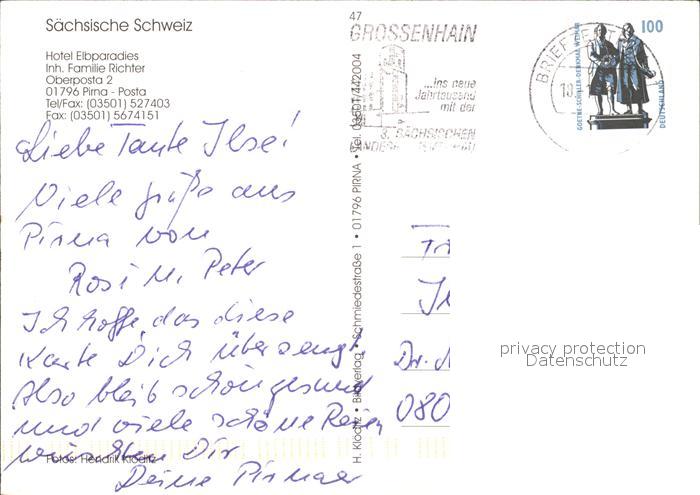 Sächsische Schweiz
Hotel Elbparadies
Inh. Familie Richter
Oberposta 2
01796 Pirna - Posta
Tel/Fax: (03501) 527403
Fax: (03501) 5674151
Liebe Tante Ilse!
Viele Grüße aus
Pirna von
Rosi u. Peter
Ich hoffe, das diese
Karte Dich überzeugt.
Also bleib schön gesund
und viele schöne Reisen
wünschen Dir
Deine Pirnaer
Fotos: Hendrik Kloditz
H. Kloditz • Bildverlag • Schmiedestraße 1 • 01796 PIRNA • Tel. 03501/442004
47
GROSSENHAIN
...ins neue
Jahrtausend
mit der
3. SÄCHSISCHEN
BRIEF
10
GOETHE-SCHILLER-DENKMAL WEIMAR
100
DEUTSCHLAND
Dr.
080
privacy protection
Datenschutz